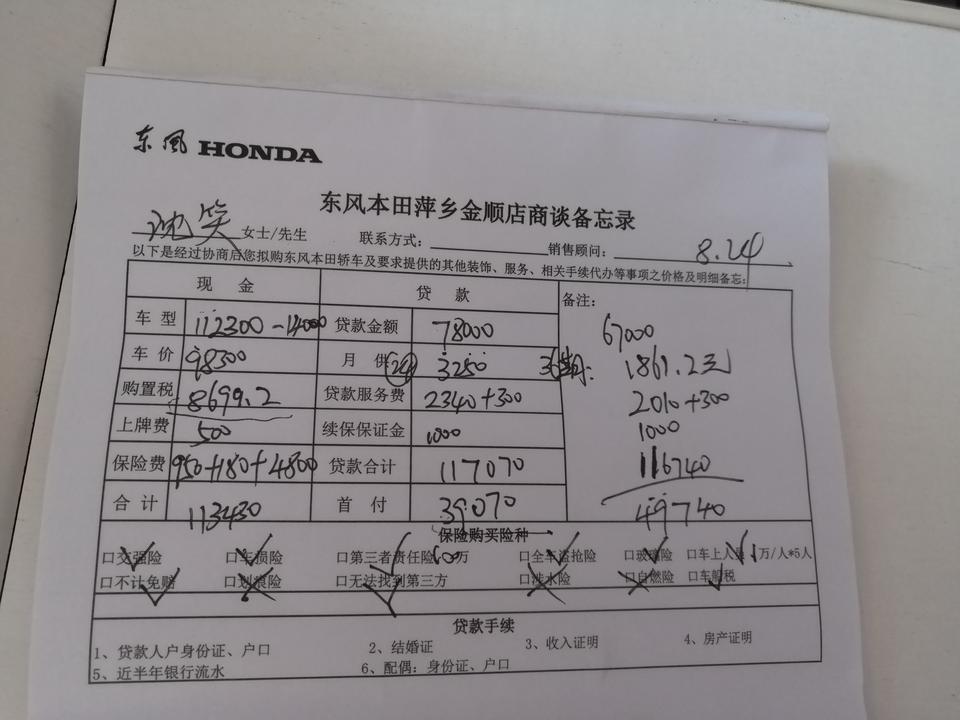 东风 HONDA
东风本田萍乡金顺店商谈备忘录
沈笑 女士/先生 联系方式: 销售顾问: 8.24
以下是经过协商后您拟购东风本田轿车及要求提供的其他装饰、服务、相关手续代办等事项之价格及明细备忘:
现 金 贷 款 备注:
车 型 112300-14000 贷款金额 78000 67000
车 价 98300 月 供 24 3250 36期: 1861.2元
购置税 8699.2 贷款服务费 2340+300 2010+300
上牌费 500 续保保证金 1000 1000
保险费 950+180+4800 贷款合计 117070 116740
合 计 113430 首 付 39070 49740
保险购买险种
口交强险 口车损险 口第三者责任险100万 口全车盗抢险 口玻璃险 口车上人员1万/人*5人
口不计免赔 口划痕险 口无法找到第三方 口涉水险 口自燃险 口车船税
贷款手续
1、贷款人户身份证、户口 2、结婚证 3、收入证明 4、房产证明
5、近半年银行流水 6、配偶：身份证、户口